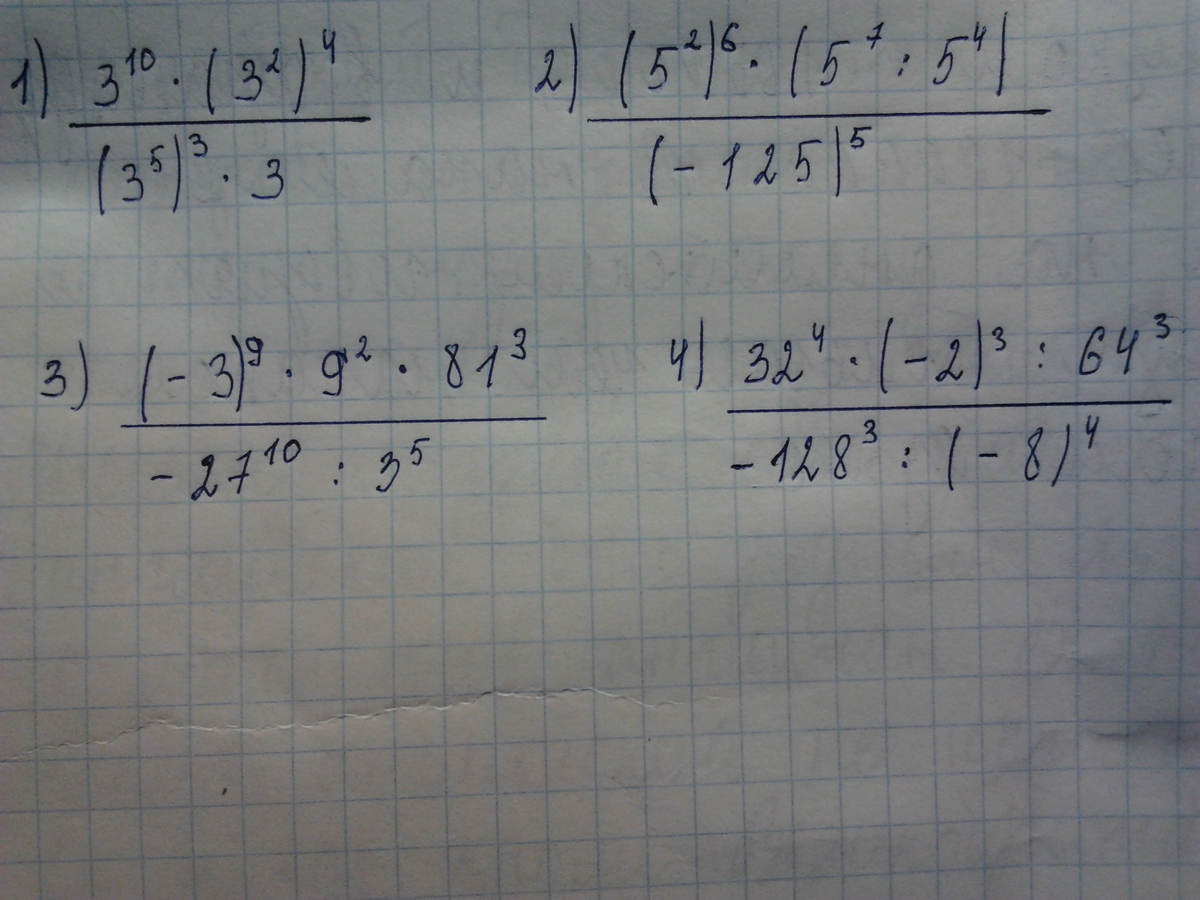 1) \frac{3^{10} \cdot (3^2)^4}{(3^5)^3 \cdot 3}
2) \frac{(5^2)^6 \cdot (5^7 : 5^4)}{(-125)^5}
3) \frac{(-3)^9 \cdot 9^2 \cdot 81^3}{-27^{10} : 3^5}
4) \frac{32^4 \cdot (-2)^3 : 64^3}{-128^3 : (-8)^4}